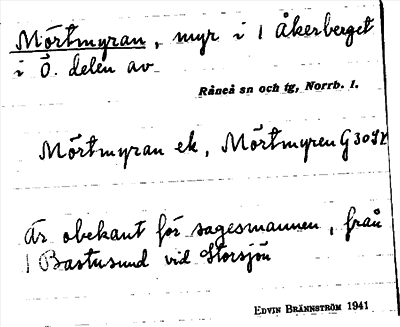 Mörtmyran, myr i | Åkerberget
i Ö. delen av
Råneå sn och tg, Norrb. l.
Mörtmyran ek, Mörtmyren G 30 SV
Är obekant för sagesmannen, från
| Bastusund vid Storsjön
EDVIN BRÄNNSTRÖM 1941